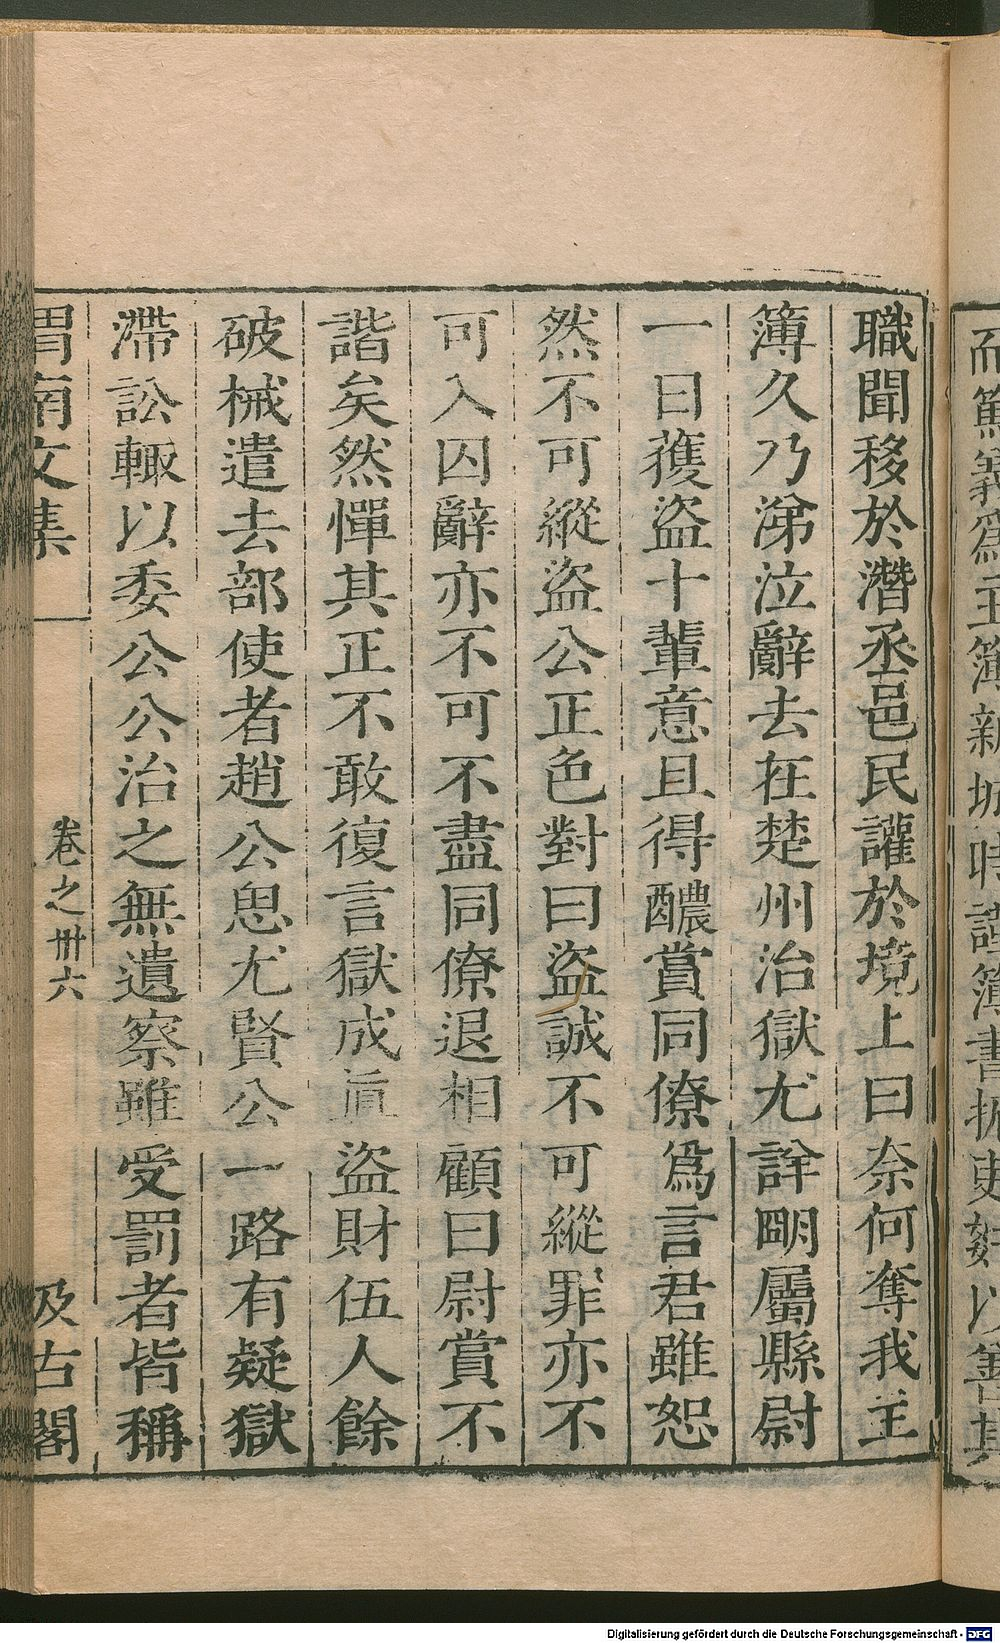 而篤義爲主簿新城時謹簿書扼吏姦以善其
職聞移於潛丞邑民讙於境上曰奈何奪我主
簿久乃涕泣辭去在楚州治獄尤詳明屬縣尉
一日獲盜十輩意且得醲賞同僚爲言君雖恕
然不可縱盜公正色對曰盜誠不可縱罪亦不
可入囚辭亦不可不盡同僚退相顧曰尉賞不
諧矣然憚其正不敢復言獄成眞盜財伍人餘
破械遣去部使者趙公思尤賢公一路有疑獄
滯訟輙以委公公治之無遺察雖受罰者皆稱
渭南文集
卷之卅六
汲古閣
Digitalisierung gefördert durch die Deutsche Forschungsgemeinschaft - DFG